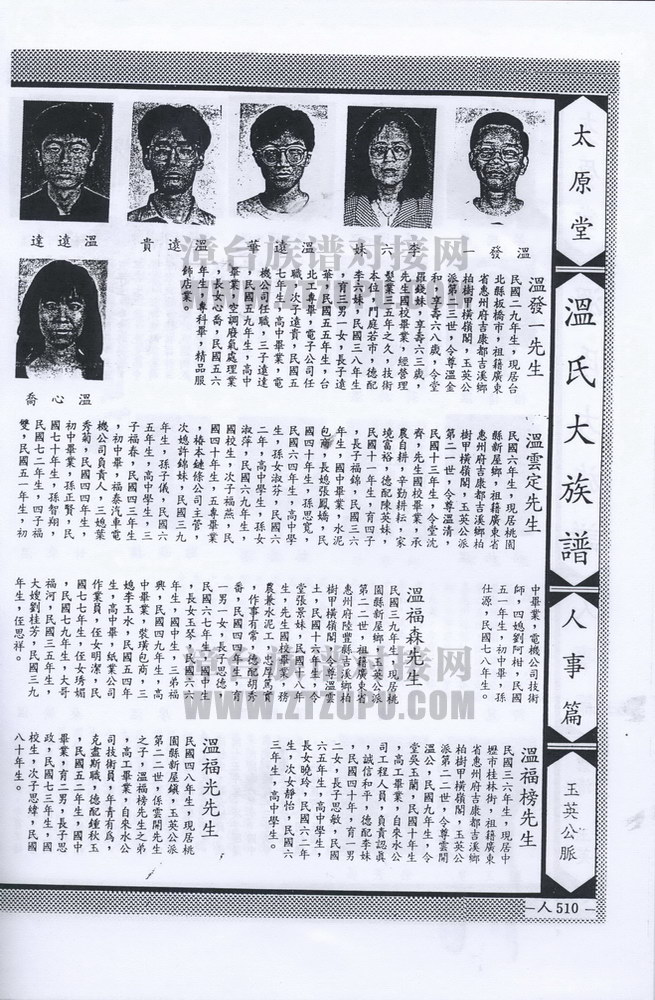 太原堂
溫氏大族譜
人事篇
玉英公脈
溫發一
李六妹
溫遠華
溫遠貴
溫遠達
溫心喬
溫發一先生
民國二九年生，現居台
北縣板橋市，祖籍廣東
省惠州府吉康都吉溪鄉
柏樹甲橫嶺閣，玉英公
派第二三世，令尊溫金
和，享壽六八歲，令堂
羅錢妹，享壽六三歲，
先生國校畢業，經營理
髮業三五年之久，技術
本位，門庭若市，德配
李六妹，民國三八年生
，育三男一女，長子遠
華，民國五五年生，台
北工專畢，電子公司任
職，次子遠貴，民國五
七年生，高中畢業，電
機公司任職，三子遠達
，民國五九年生，高中
畢業，空調廢氣處理業
，長女心喬，民國五六
年生，專科畢，精品服
飾店業。
溫雲定先生
民國六年生，現居桃園
縣新屋鄉，祖籍廣東省
惠州府吉康都吉溪鄉柏
樹甲橫嶺閣，玉英公派
第二一世，令尊溫清，
民國十三年生，令堂沈
齊，先生國校畢業，承
農自耕，辛勤耕耘，家
境富裕，德配陳英妹，
民國十一年生，育四子
，長子福錦，民國三六
年生，國中畢業，水泥
包商，長媳張鳳嬌，民
國四十年生，孫思寬，
民國六四年生，高中學
生，孫女淑芬，民國六
二年，高中學生，孫女
淑萍，民國六九年生，
國校生，次子福燕，民
國四十年生，五專畢業
，椿本鏈條公司主管，
次媳許錦妹，民國三九
年生，孫子儀，民國六
五年生，高中學生，三
子福春，民國四三年生
，初中畢，福泰汽車電
機公司負責人，三媳葉
秀菊，民國四四年生，
初中畢業，孫正賢，民
國七十年生，孫智翔，
民國七二年生，四子福
雙，民國五一年生，初
中畢業，電機公司技術
師，四媳劉阿柑，民國
五一年生，初中畢，孫
仕源，民國七八年生。
溫福森先生
民國三九年生，現居桃
園縣新屋鄉，玉英公派
第二二世，祖籍廣東省
惠州府陸豐縣吉溪鄉柏
樹甲橫嶺閣，令尊溫雲
土，民國十六年生，令
堂張景妹，民國十八年
生，先生國校畢業，務
農兼水泥工，忠厚篤實
，作事有常，德配胡秀
番，民國四四年生，育
一男一女，長子思德，
民國六七年生，國中生
，長女玉琴，民國六六
年生，國中生，三弟福
興，民國四九年生，高
中畢業，裝璜包商，三
媳李玉水，民國五四年
生，高中畢，紙業公司
作業員，侄女明潔，民
國七七年生，侄女琇媚
，民國七九年生，大哥
福河，民國三五年生，
大嫂劉桂芳，民國三九
年生，侄思祥。
溫福榜先生
民國三六年生，現居中
壢市桂林街，祖籍廣東
省惠州府吉康都吉溪鄉
柏樹甲橫嶺閣，玉英公
派第二二世，令尊雲開
溫公，民國九年生，令
堂吳玉蘭，民國十年生
，高工畢業，自來水公
司工程人員，負責認真
，誠信和平，德配李妹
，民國四十年，育一男
二女，長子思敏，民國
六五年生，高中學生，
長女曉玲，民國六二年
生，次女靜怡，民國六
三年生，高中學生。
溫福光先生
民國四八年生，現居桃
園縣新屋鎮，玉英公派
第二二世，係雲開先生
之子，溫福榜先生之弟
，高工畢業，自來水公
司技術員，年青有為，
克盡斯職，德配鍾秋玉
，民國五二年生，國中
畢業，育二男，長子思
政，民國七三年生，國
校生，次子思緯，民國
八十年生。
人510
漳台族谱对接网
WWW.ZTZUPU.COM
漳台族谱对接网
WWW.ZTZUPU.COM